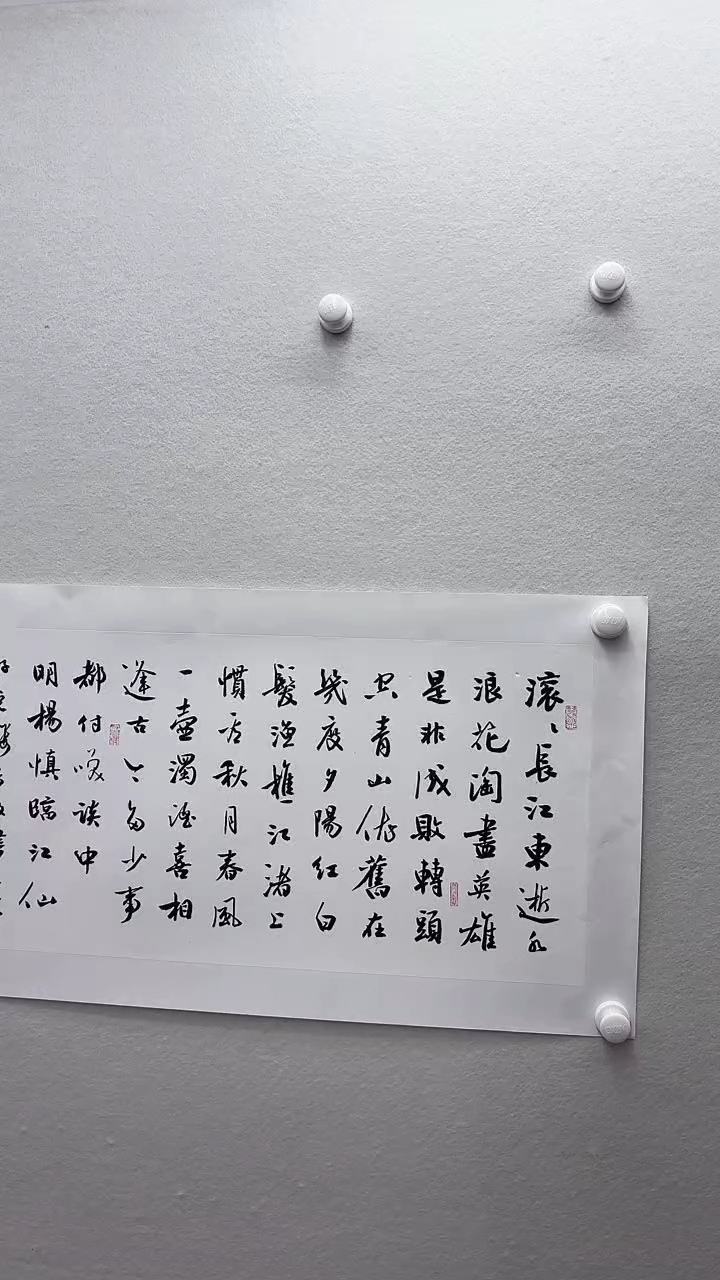 滚〻長江東逝水
浪花淘盡英雄
是非成敗轉頭
空青山依舊在
幾度夕陽紅白
髮漁樵江渚上
慣看秋月春風
一壺濁酒喜相
逢古今多少事
都付咲談中
明楊慎臨江仙